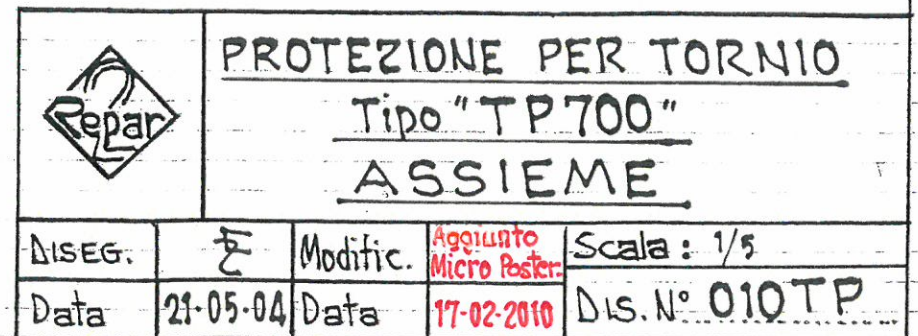 Repar
2
PROTEZIONE PER TORNIO
Tipo "TP700"
ASSIEME
DISEG. Modific. Aggiunto Micro Poster. Scala : 1/5
Data 21-05-04 Data 17-02-2010 DIS. N° 010TP